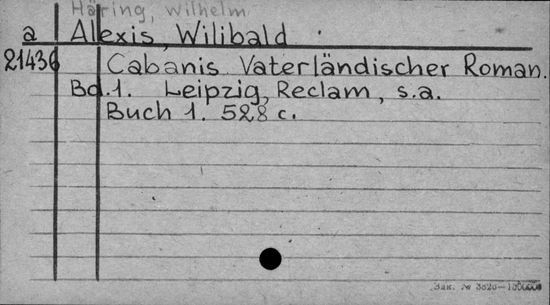 Häring, Wilhelm
a Alexis, Wilibald
21436 Cabanis. Vaterländischer Roman.
Bd.1. Leipzig, Reclam, s.a.
Buch 1. 528 c.
Зак. №